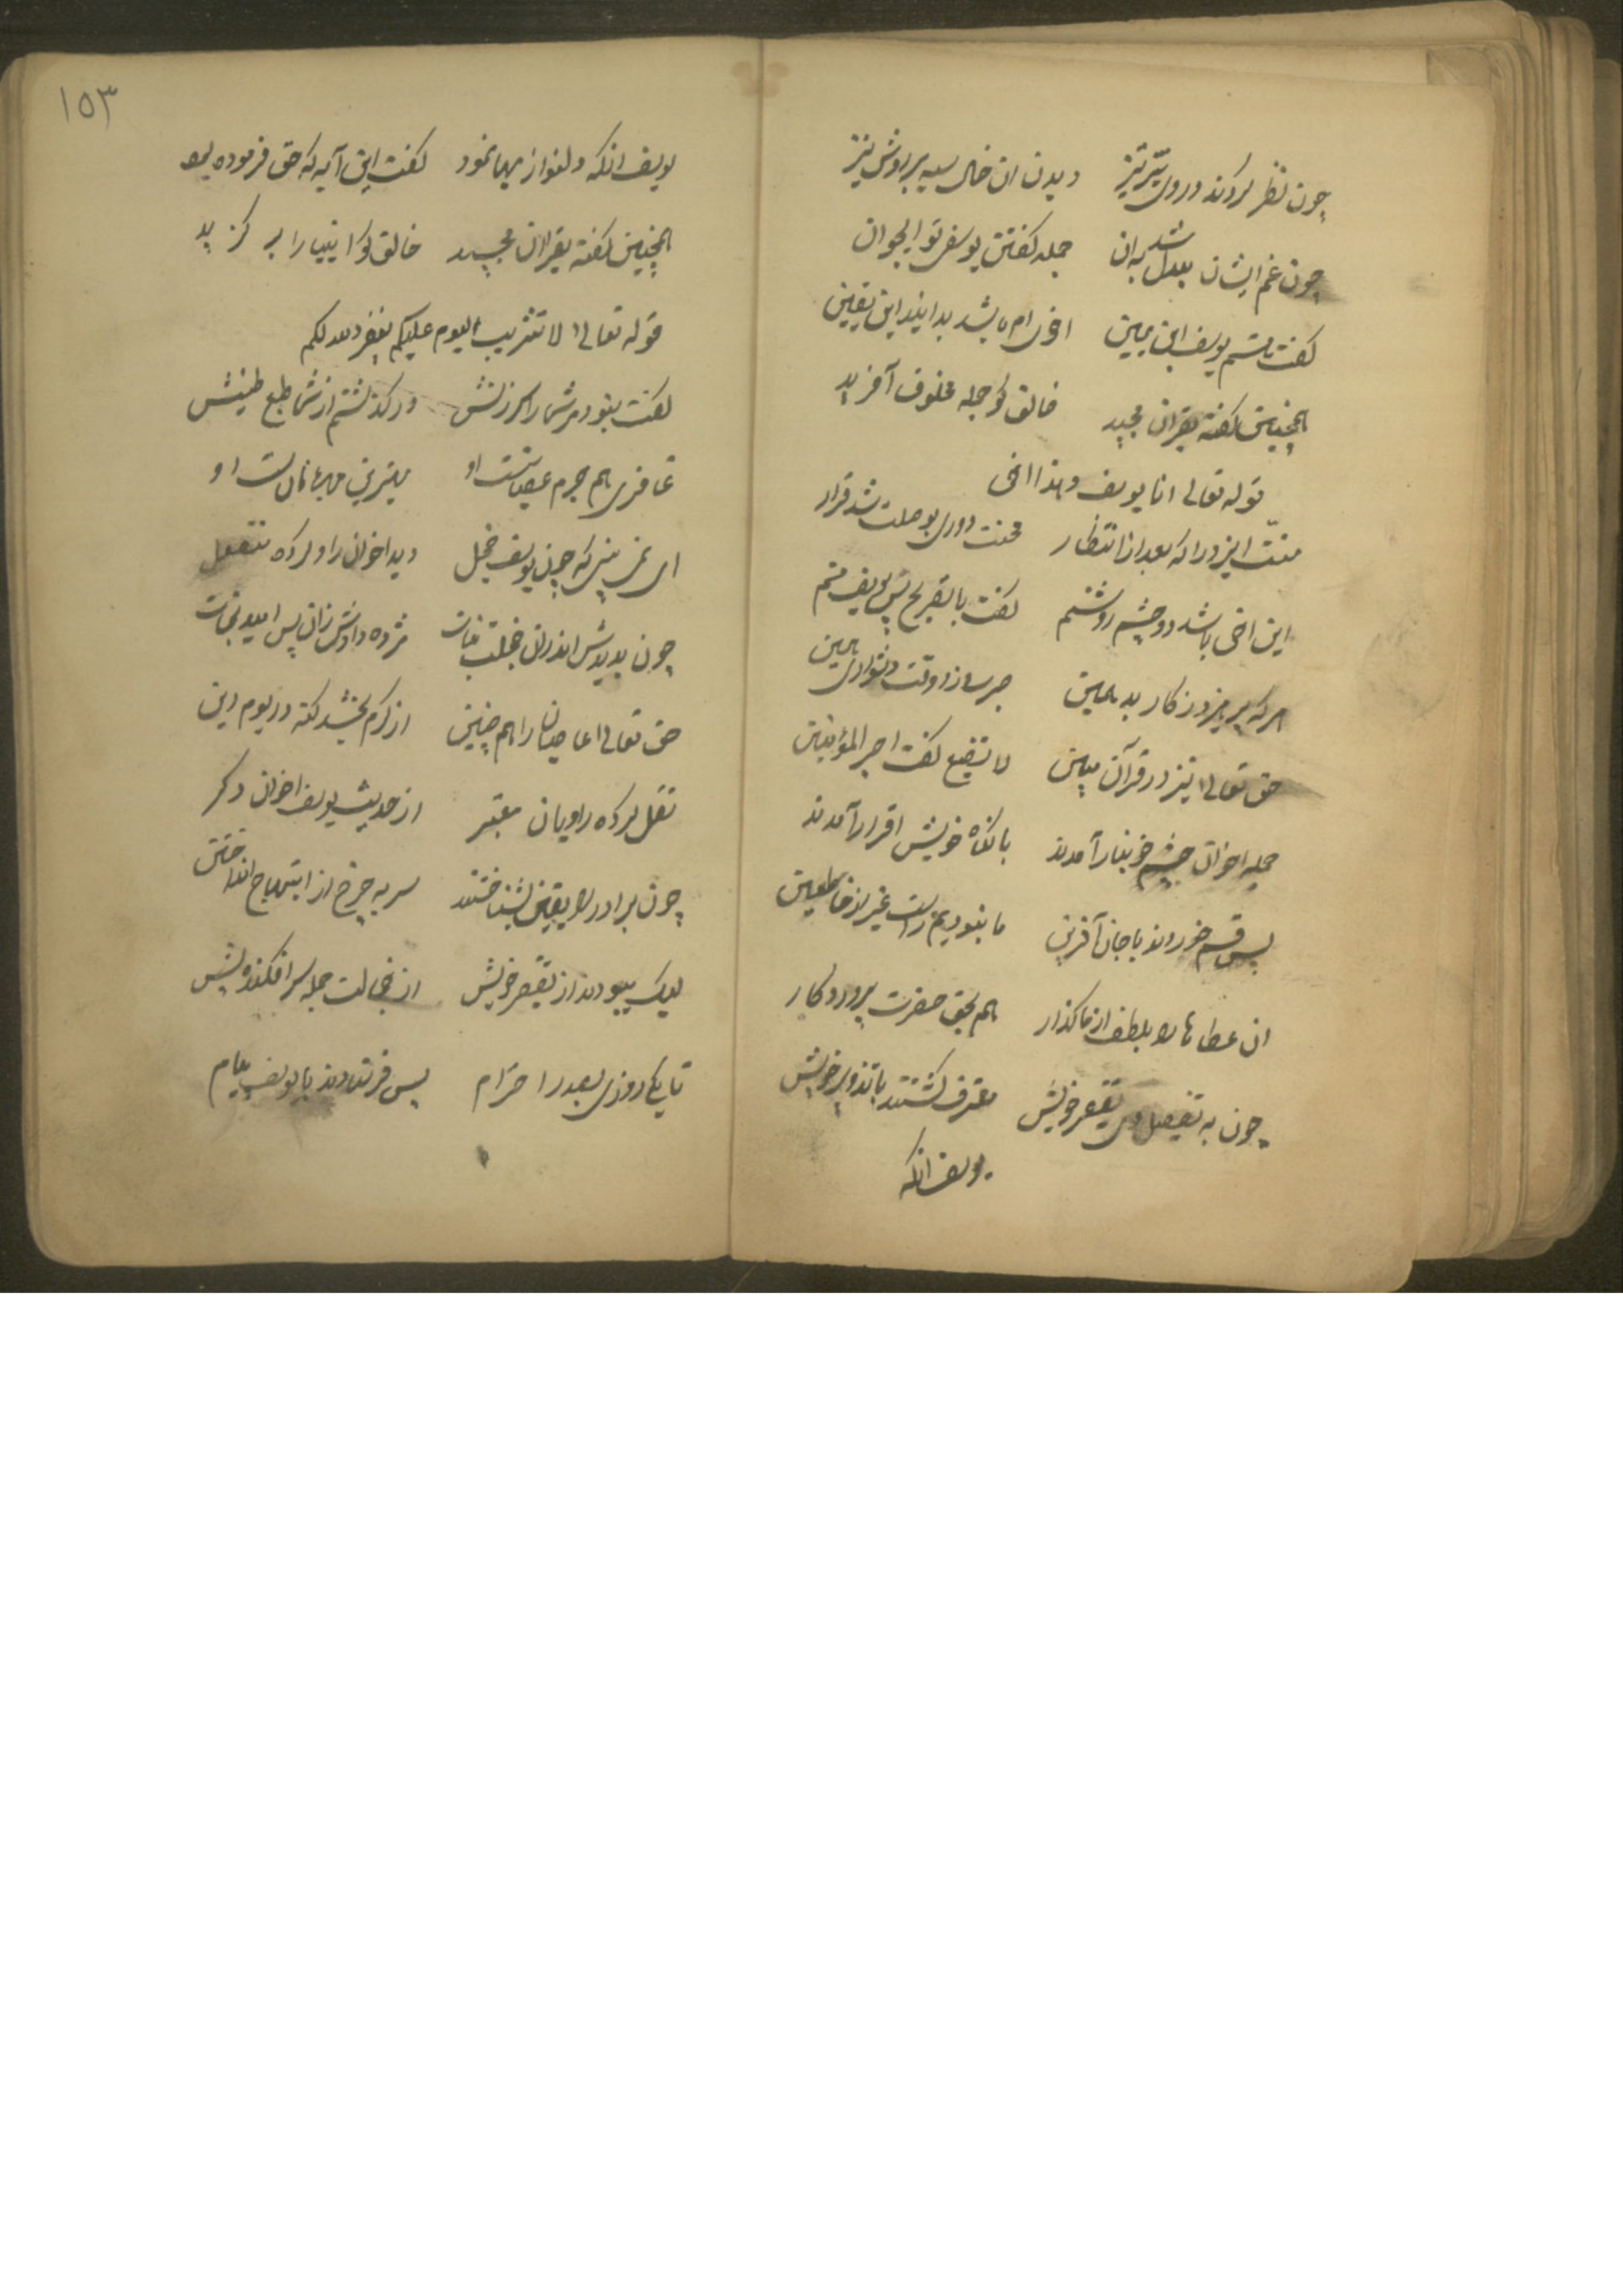 چون نظر کردند در وی تیز تیز دیدن ان خال سیه بر روش نیز
چون غم ایشان بدل شد بدان جمله گفتن یوسفی تو ایجوان
گفت هستم یوسف این یمین اخی ام باشد بدانید این یقین
همچنین گفته بقران مجید خالق کو جمله مخلوق آفرید
قوله تعالی انا یوسف و هذا اخی
منت ایزد را که بعد از انتظار محنت دوری بوصلت شد قرار
این اخی باشد دو چشم روشنم گفت بالتصریح یوسف منم
هرکه پرهیزد ز کار بد همین صبر سازد وقت دشواری همین
حق تعالی نیز در قرآن مبین لا یضیع گفت اجر المؤمنین
جمله اخوان چشم خونبار آمدند باگناه خویش اقرار آمدند
پس قسم خوردند با جان آفرین ما نبودیم راست غیر از خاطئین
ان عطاها را بلطف از ما گذار هم بحق حضرت پروردگار
چون به تفضیل وی تقصیر خویش معترف گشتند با تزویر خویش
یوسف انکه
١٥٣
یوسف انکه دلنوازیها نمود گفت این آیه که حق فرموده بود
همچنین گفته بقران مجید خالق کو انبیا را بر گزید
قوله تعالی لا تثریب الیوم علیکم یغفر الله لکم
گفت نبود مر شما را سرزنش در گذشتم از شما
غافری هم جرم عصیانست او بهترین مهربانانست او
ای نمی بینی که چون یوسف خجل دید اخوان را و کرده منفعل
چون بدیدش اندران خجلت مژده دادش زان پس امید نجات
حق تعالی عاصیان را هم چنین از کرم بخشد گنه در یوم دین
نقل کرده راویان معتبر از حدیث یوسف اخوان دگر
چون برادر را یقین بشناختند سر به چرخ از ابتهاج انداختن
لیک بودند از تقصیر خویش از خجالت جمله سر افکنده پیش
تا یکی روزی بصدر احترام پس فرستادند با یوسف پیام